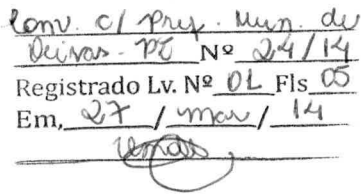 Conv. c/ Pref. Mun. de
Oeiras - PI Nº 24/14
Registrado Lv. Nº 01 Fls 05
Em, 27 / mar / 14